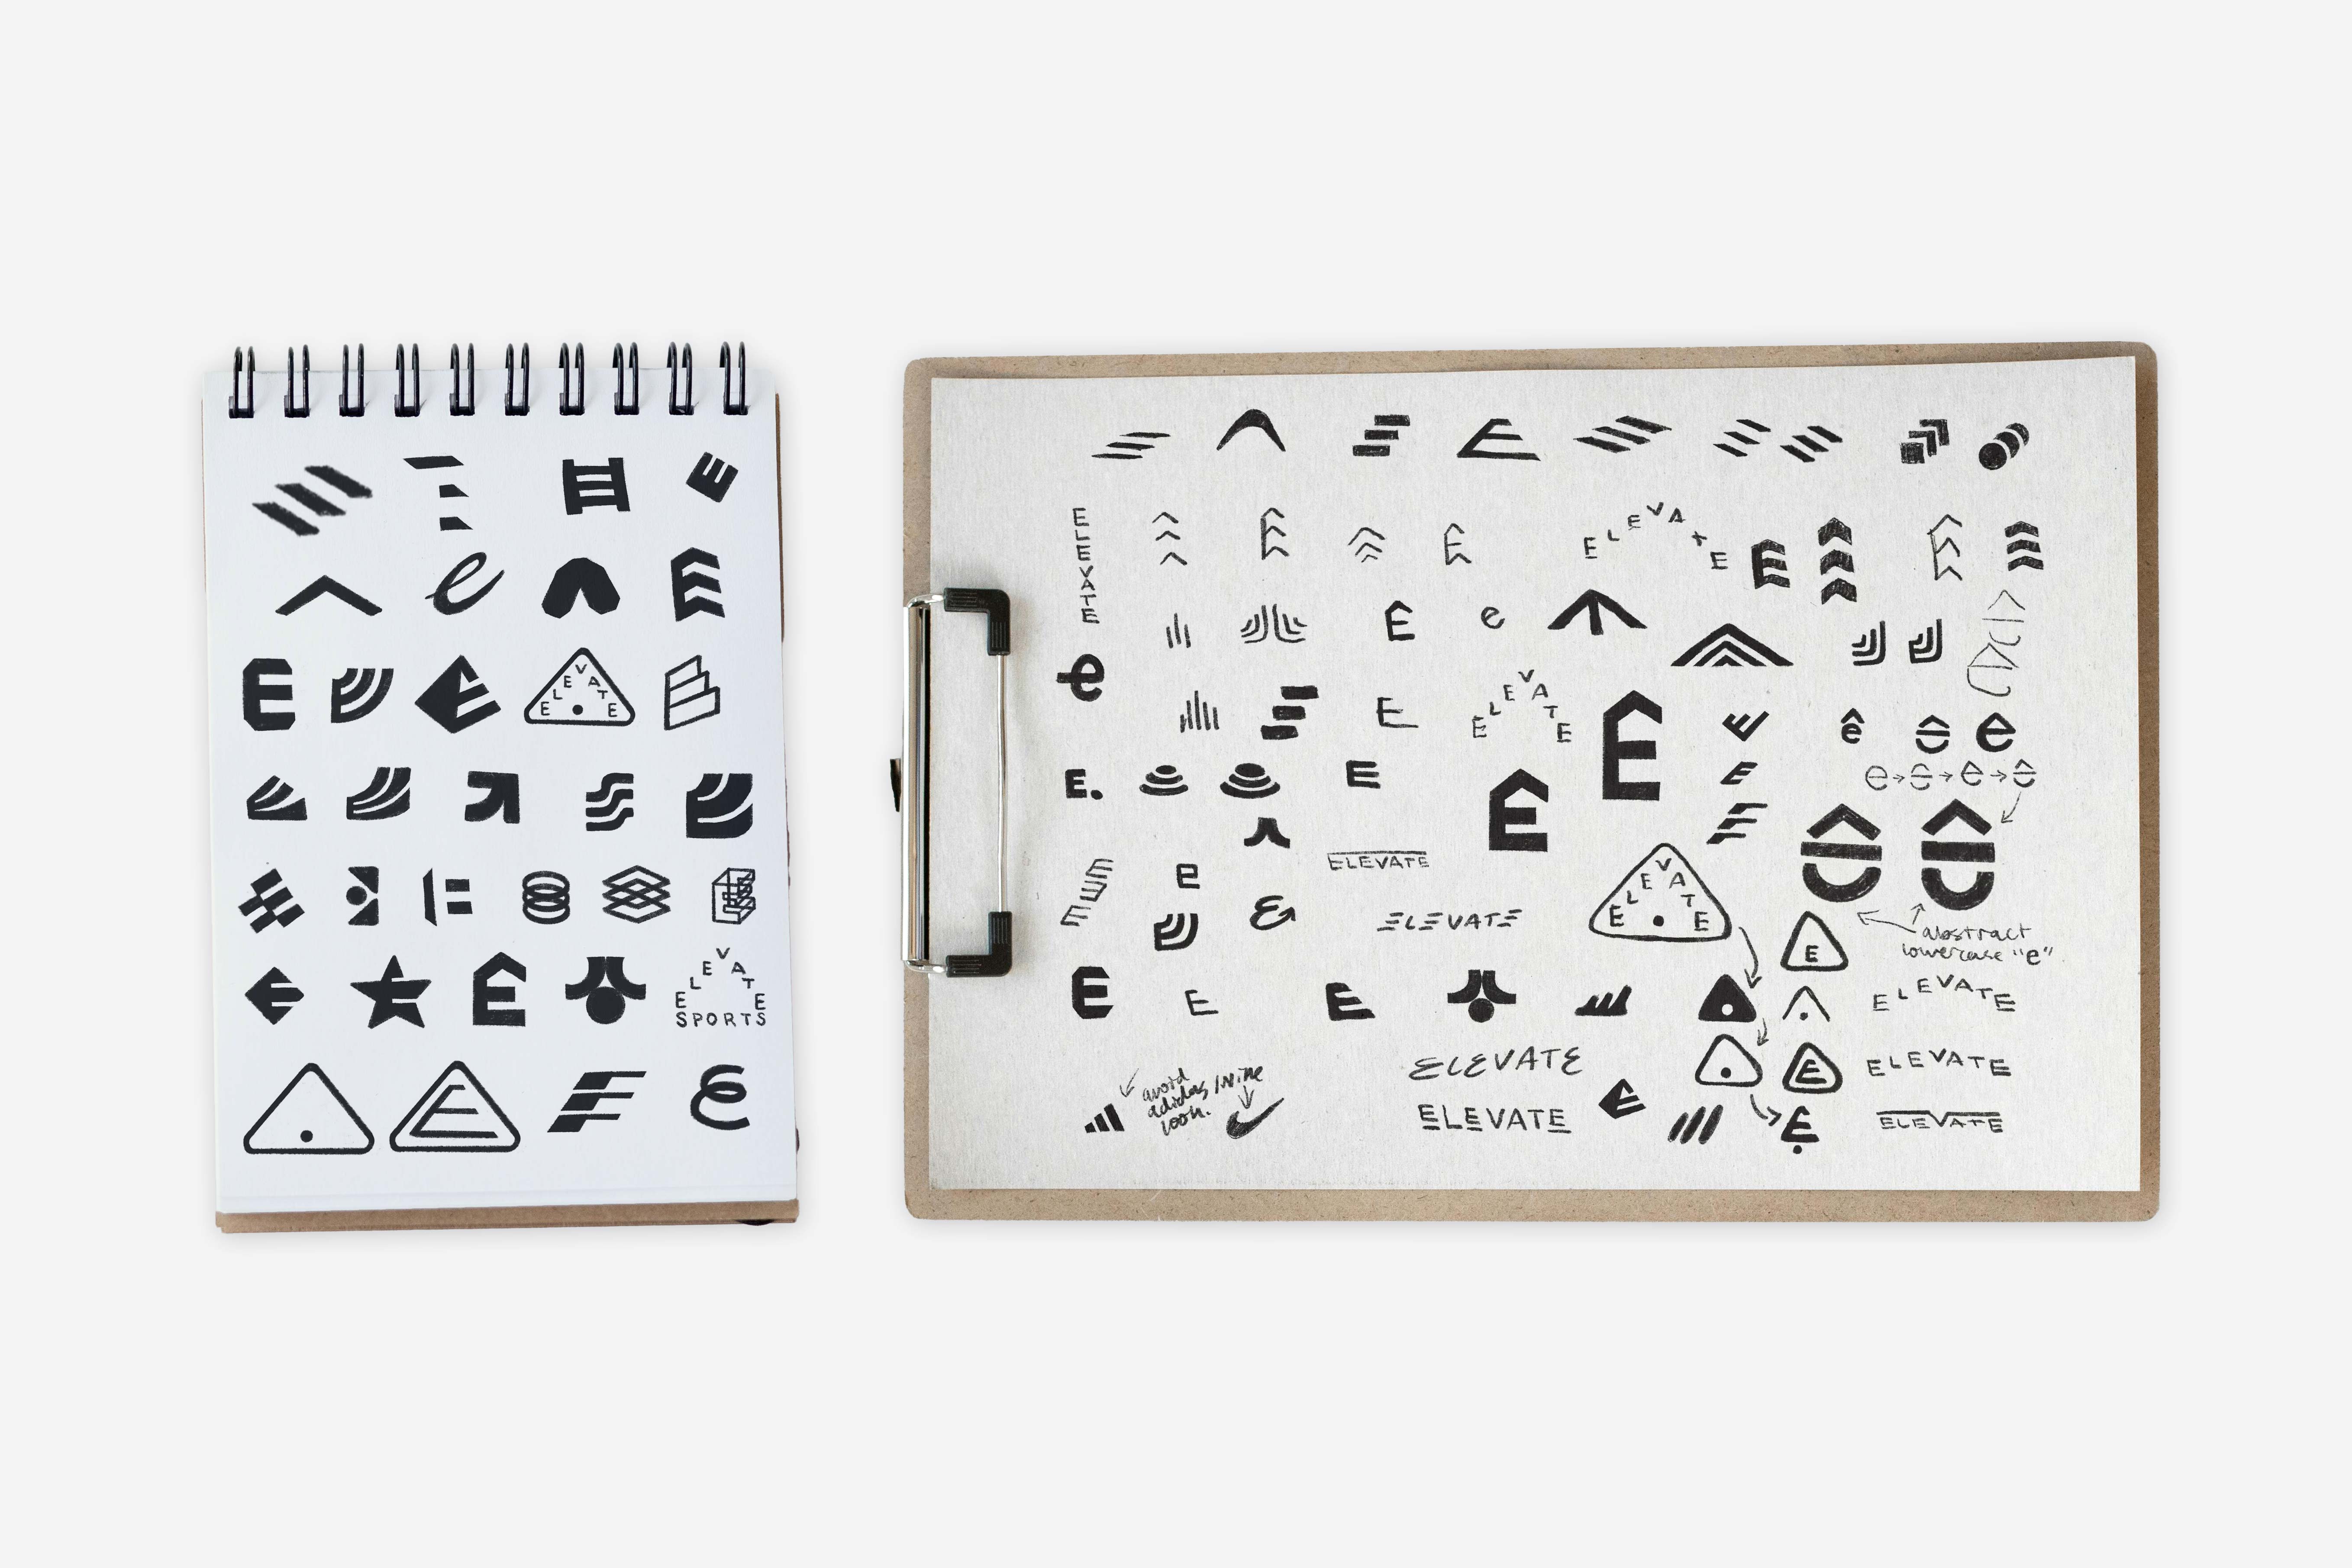 E
e
E
E
E
ELEVATE
E
E
E
ELEVATE
SPORTS
E
E
ELEVATE
ELEVATE
E
E
e
e
ELEVATE
E
E
ê
e
E.
E
E
e
ELEVATE
ELEVATE
ELEVATE
E
abstract
lowercase "e"
E
E
E
ELEVATE
ELEVATE
E
ELEVATE
avoid
adidas/nike
look.
ELEVATE
ELEVATE